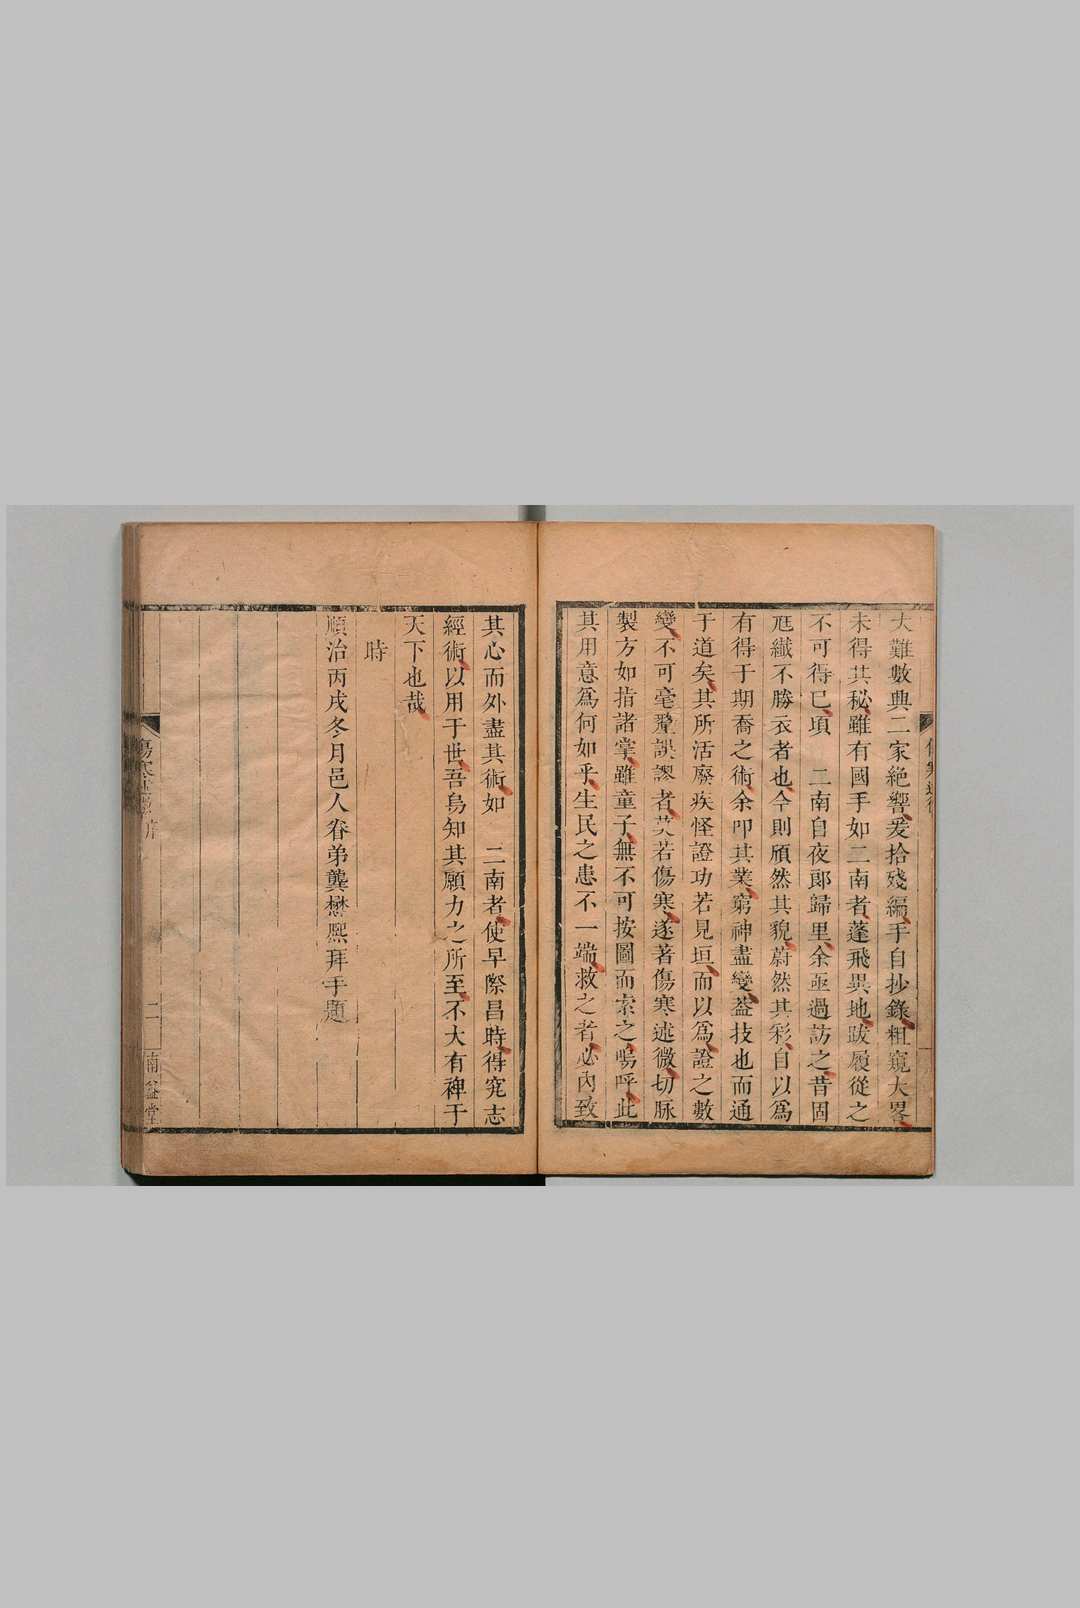 大難數典二家絶響爰拾殘編手自抄錄粗窺大畧
未得其秘雖有國手如二南者蓬飛異地跋履從之
不可得已頃　二南自夜郎歸里余亟過訪之昔固
尪纎不勝衣者也今則頎然其貌蔚然其彩自以爲
有得于期喬之術余叩其業窮神盡變葢技也而通
于道矣其所活廢疾怪證功若見垣而以爲證之數
變不可毫釐誤謬者莫若傷寒遂著傷寒述微切脉
製方如指諸掌雖童子無不可按圖而索之嗚呼此
其用意爲何如乎生民之患不一端救之者必内致
其心而外盡其術如　二南者使早際昌時得究志
經術以用于世吾烏知其願力之所至不大有裨于
天下也哉
時
順治丙戌冬月邑人眷弟龔懋熙拜手題
傷寒述微
序
二
南谿堂